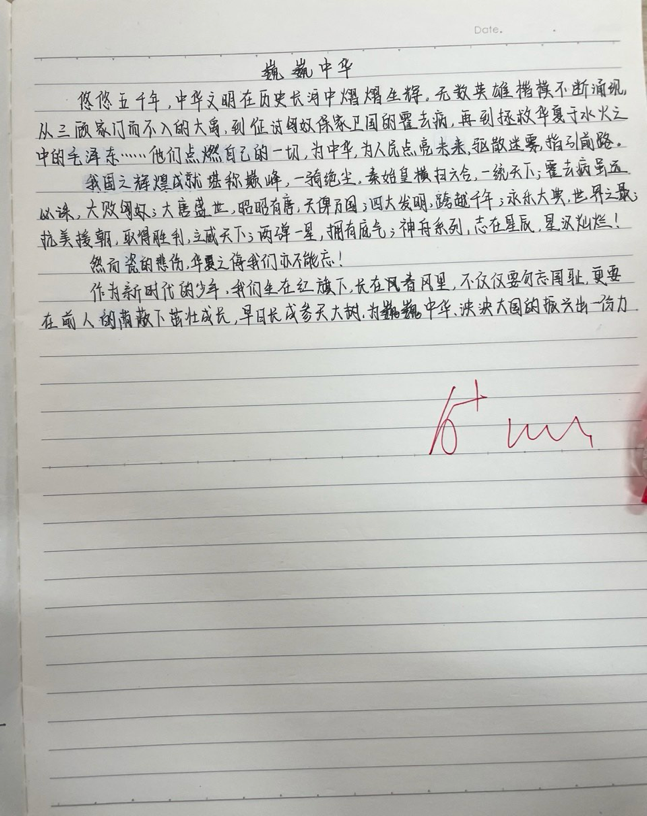 Date.
巍巍中华
悠悠五千年，中华文明在历史长河中熠熠生辉，无数英雄楷模不断涌现，
从三顾家门而不入的大禹，到征讨匈奴保家卫国的霍去病，再到拯救华夏于水火之
中的毛泽东……他们点燃自己的一切，为中华，为人民点亮未来，驱散迷雾，指引前路。
我国之辉煌成就堪称巅峰，一骑绝尘，秦始皇横扫六合，一统天下；霍去病虽远
必诛，大败匈奴；大唐盛世，昭昭有唐，天俾万国；四大发明，跨越千年；永乐大典，世界之最；
抗美援朝，取得胜利，立威天下；两弹一星，拥有底气；神舟系列，志在星辰，星汉灿烂！
然而瓷的悲伤，华夏之悔我们亦不能忘！
作为新时代的少年，我们坐在红旗下，长在风里，不仅仅要勿忘国耻，更要
在前人的荫蔽下茁壮成长，早日长成参天大树，为巍巍中华，泱泱大国的振兴出一份力